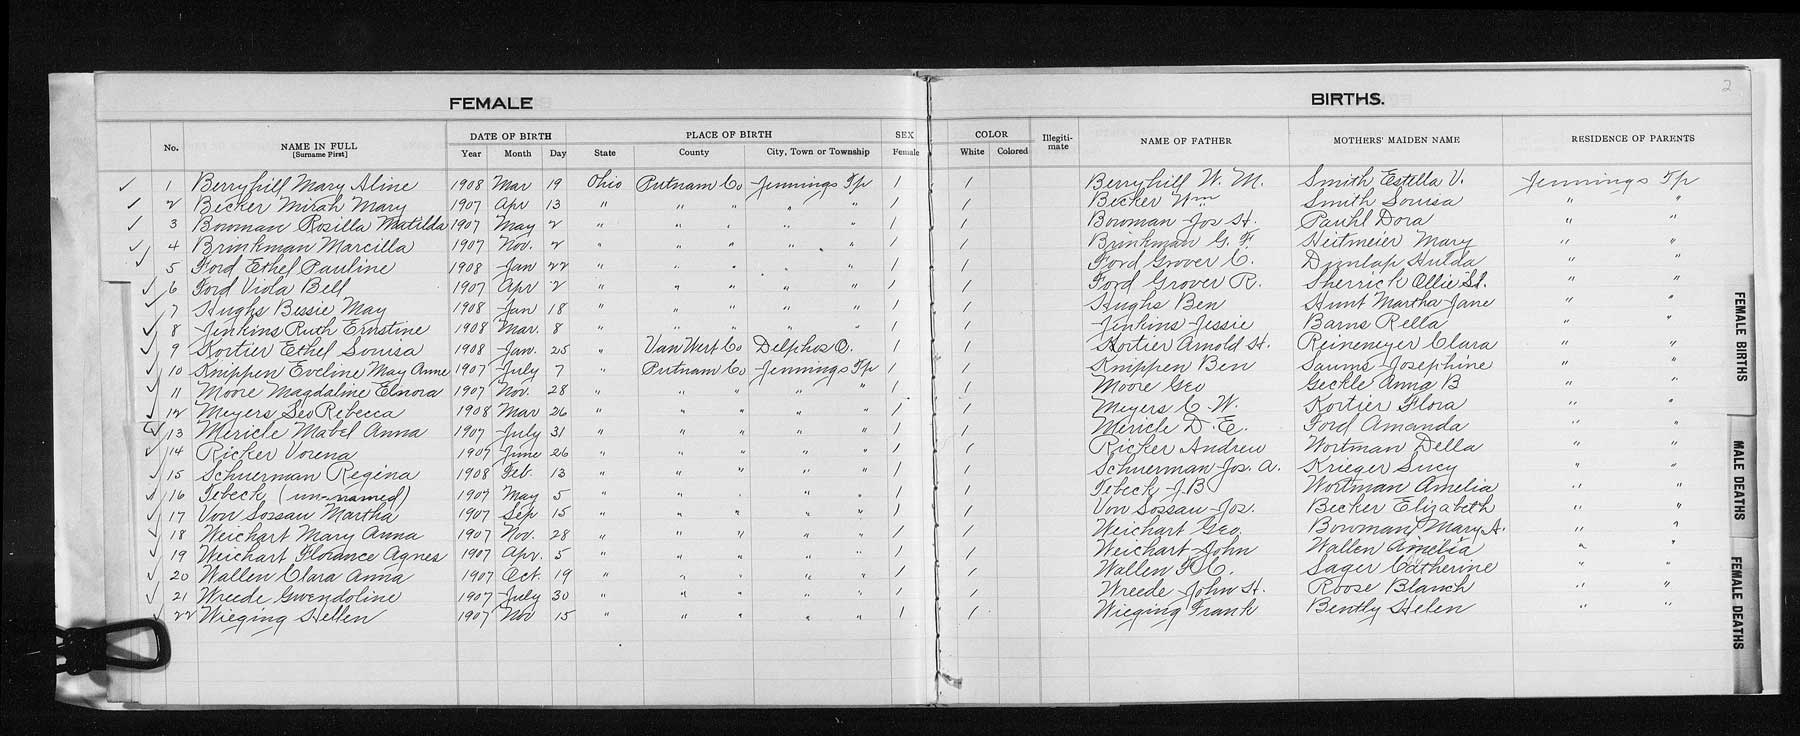 2
FEMALE BIRTHS.
No. NAME IN FULL [Surname First] DATE OF BIRTH Year Month Day PLACE OF BIRTH State County City, Town or Township SEX Female COLOR White Colored Illegiti-mate NAME OF FATHER MOTHERS' MAIDEN NAME RESIDENCE OF PARENTS
✓ 1 Berryhill Mary Aline 1908 Mar 19 Ohio Putnam Co Jennings Tp 1 1 Berryhill W. M. Smith Estella V. Jennings Tp
✓ 2 Becker Mirah Mary 1907 Apr 13 " " " " " 1 1 Becker Wm Smith Louisa " "
✓ 3 Bowman Rosilla Matilda 1907 May 2 " " " " " 1 1 Bowman Jos H. Pauhl Dora " "
✓ 4 Brinkman Marcilla 1907 Nov. 2 " " " " " 1 1 Brinkman G. F. Heitmeier Mary " "
✓ 5 Ford Ethel Pauline 1908 Jan 22 " " " " " 1 1 Ford Grover C. Dunlap Hulda " "
✓ 6 Ford Viola Bell 1907 Apr 2 " " " " " 1 1 Ford Grover R. Sherrick Ollie " "
✓ 7 Hughs Bessie May 1908 Jan 18 " " " " " 1 1 Hughs Ben Hunt Martha Jane " "
✓ 8 Jenkins Ruth Ernstine 1908 Mar. 8 " " " " " 1 1 Jenkins Jessie Barns Rella " "
✓ 9 Kortier Ethel Louisa 1908 Jan. 25 " Van Wert Co Delphos O. 1 1 Kortier Arnold H. Reinemeyer Clara " "
✓ 10 Knippen Eveline May Anne 1907 July 7 " Putnam Co Jennings Tp 1 1 Knippen Ben Saums Josephine " "
✓ 11 Moore Magdaline Elnora 1907 Nov. 28 " " " " " 1 1 Moore Geo Geckle Anna B " "
✓ 12 Meyers Leo Rebecca 1908 Mar 26 " " " " " 1 1 Meyers C. W. Kortier Flora " "
✓ 13 Mericle Mabel Anna 1907 July 31 " " " " " 1 1 Mericle D. E. Ford Amanda " "
✓ 14 Ricker Vorena 1907 June 26 " " " " " 1 1 Ricker Andrew Wortman Della " "
✓ 15 Schnerman Regina 1908 Feb. 13 " " " " " 1 1 Schnerman Jos. A. Krieger Lucy " "
✓ 16 Tebeck (un-named) 1907 May 5 " " " " " 1 1 Tebeck J. B Wortman Amelia " "
✓ 17 Von Sossan Martha 1907 Sep 15 " " " " " 1 1 Von Sossan Jos. Becker Elizabeth " "
✓ 18 Weichart Mary Anna 1907 Nov. 28 " " " " " 1 1 Weichart Geo. Bowman Mary A. " "
✓ 19 Weichart Florance Agnes 1907 Apr. 5 " " " " " 1 1 Weichart John Wallen Amelia " "
✓ 20 Wallen Clara Anna 1907 Oct. 19 " " " " " 1 1 Wallen F. C. Sager Catherine " "
✓ 21 Wreede Gwendoline 1907 July 30 " " " " " 1 1 Wreede John H. Roose Blanch " "
✓ 22 Wieging Hellen 1907 Nov 15 " " " " " 1 1 Wieging Frank Bently Helen " "
FEMALE BIRTHS
MALE DEATHS
FEMALE DEATHS